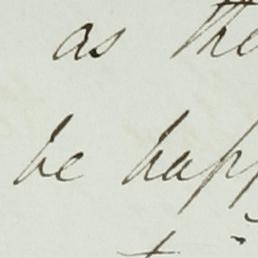 as the
be happ